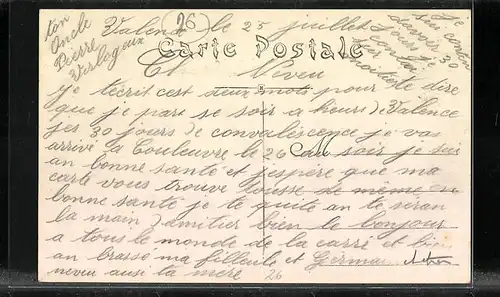 Valence (26) le 25 juillet
Carte Postale
ton
Oncle
Pierre
Virlogeux
je
suis conten
davoir 30
jours
Ct Neveu
je tecrit cest deux mots pour te dire
que je part se soir a heurs) Valence
jes 30 jours de convalescence je vas
arrivé a Couleuvre le 26 au soir je sui
an bonne santé et jespère que ma
carte vous trouve tousse de même en
bonne santé je te quite an te seran
la main) amitier bien le bonjour
a tous le monde de la carré et bien
an brasse ma filleule et Germai
neveu ausi ta mere
26